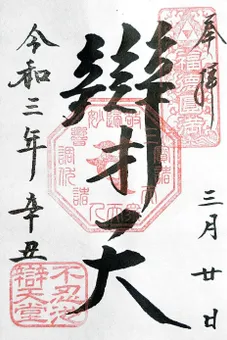 奉拝
三月廿日
辯才天
令和三年辛丑
不忍池
辯天堂